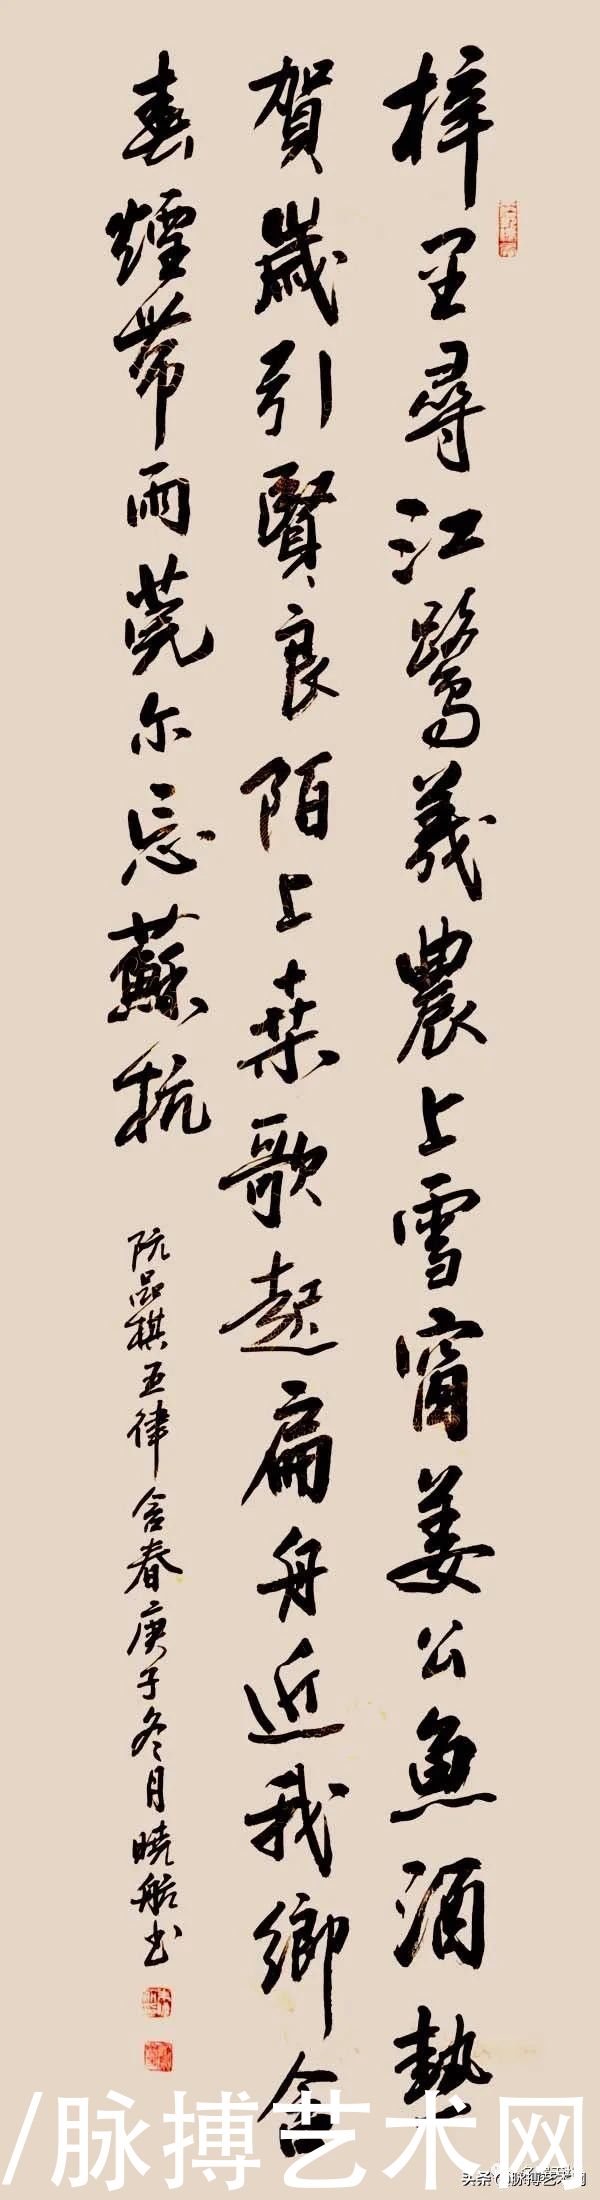 梓里尋江鷺羲農上雪窗姜公魚酒熱
賀歲引賢良陌上桒歌起扁舟近我鄉含
春煙帶雨莞尔忘蘇杭
阮品棋五律含春庚子冬月曉航书
/脉搏艺术网
头条@脉搏艺术网